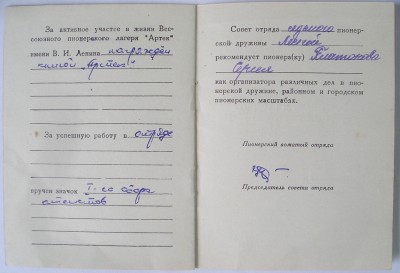 За активное участие в жизни Всесоюзного пионерского лагеря "Артек"
имени В. И. Ленина награждён
книгой „Артек"
За успешную работу в отряде
вручен значок I-го сбора
Совет отряда седьмого пионерской дружины
рекомендует пионера(ку) Платонова
Сергея
как организатора различных дел в пионерской дружине, районном и городском
пионерских масштабах.
Пионерский комитет отряда
Председатель совета отряда